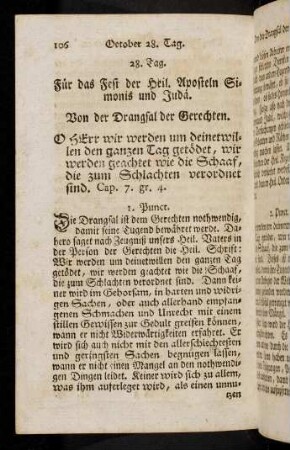 106 October 28. Tag.
28. Tag.
Für das Fest der Heil. Aposteln Si-
monis und Judä.
Von der Drangsal der Gerechten.
O HErr wir werden um deinetwil-
len den ganzen Tag getödet, wir
werden geachtet wie die Schaaf,
die zum Schlachten verordnet
sind. Cap. 7. gr. 4.
1. Punct.
Die Drangsal ist dem Gerechten nothwendig,
damit seine Tugend bewähret werde. Da-
hero saget nach Zeugniß unsers Heil. Vaters in
der Person der Gerechten die Heil. Schrift:
Wir werden um deinetwillen den ganzen Tag
getödet, wir werden geachtet wie die Schaaf,
die zum Schlachten verordnet sind. Dann kei-
ner wird im Gehorsam, in harten und widri-
gen Sachen, oder auch allerhand empfan-
genen Schmachen und Unrecht mit einem
stillen Gewissen zur Gedult greiffen können,
wann er nicht Widerwärtigkeiten erfahret. Er
wird sich auch nicht mit den allerschlechtesten
und geringsten Sachen begnügen lassen,
wann er nicht einen Mangel an den nothwendi-
gen Dingen leidet. Keiner wird sich zu allem,
was ihm auferleget wird, als einen unnu-
tzen